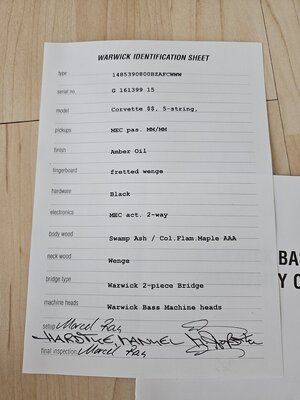 WARWICK IDENTIFICATION SHEET
type 1485390800BZAFCWWW
serial no. G 161399 15
model Corvette $$, 5-string,
pickups MEC pas. MM/MM
finish Amber Oil
fingerboard fretted wenge
hardware Black
electronics MEC act. 2-way
body wood Swamp Ash / Col.Flam.Maple AAA
neck wood Wenge
bridge type Warwick 2-piece Bridge
machine heads Warwick Bass Machine heads
setup Marcel
final inspection Marcel
BAS
Y C